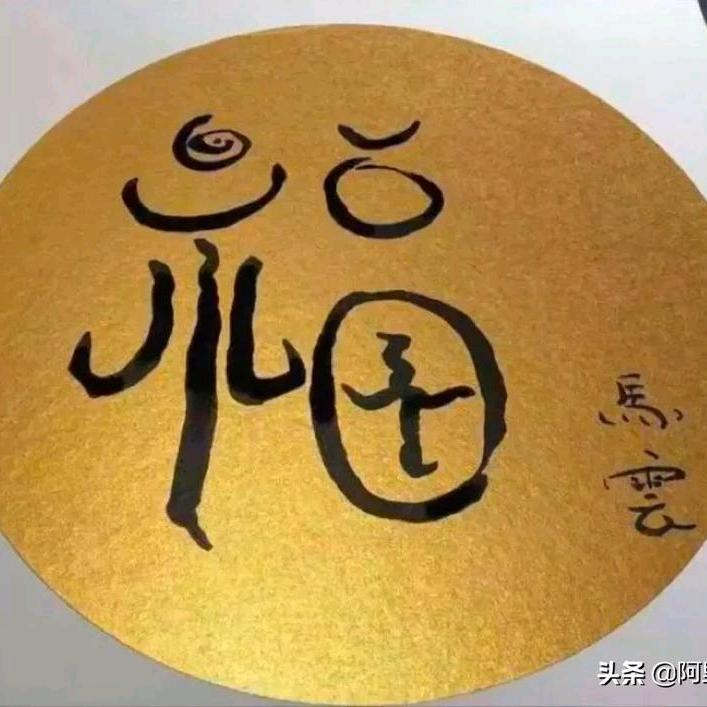 福
馬雲
头条 @阿里